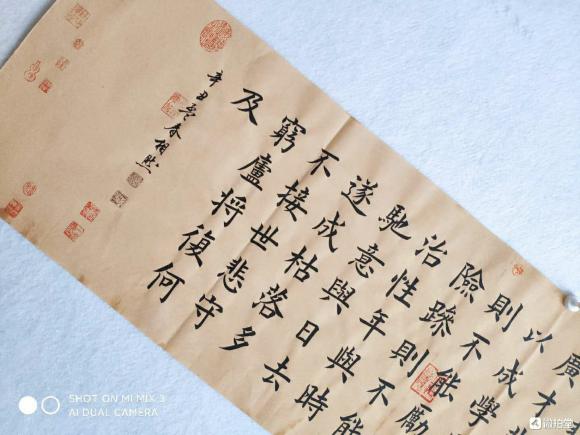 廣才
以成學
則不能勵
險躁則不能
治性年與時
馳意與日去
遂成枯落多
不接世悲守
窮廬將復何
及
辛丑孟春柏然
SHOT ON MI MIX 3
AI DUAL CAMERA
微拍堂